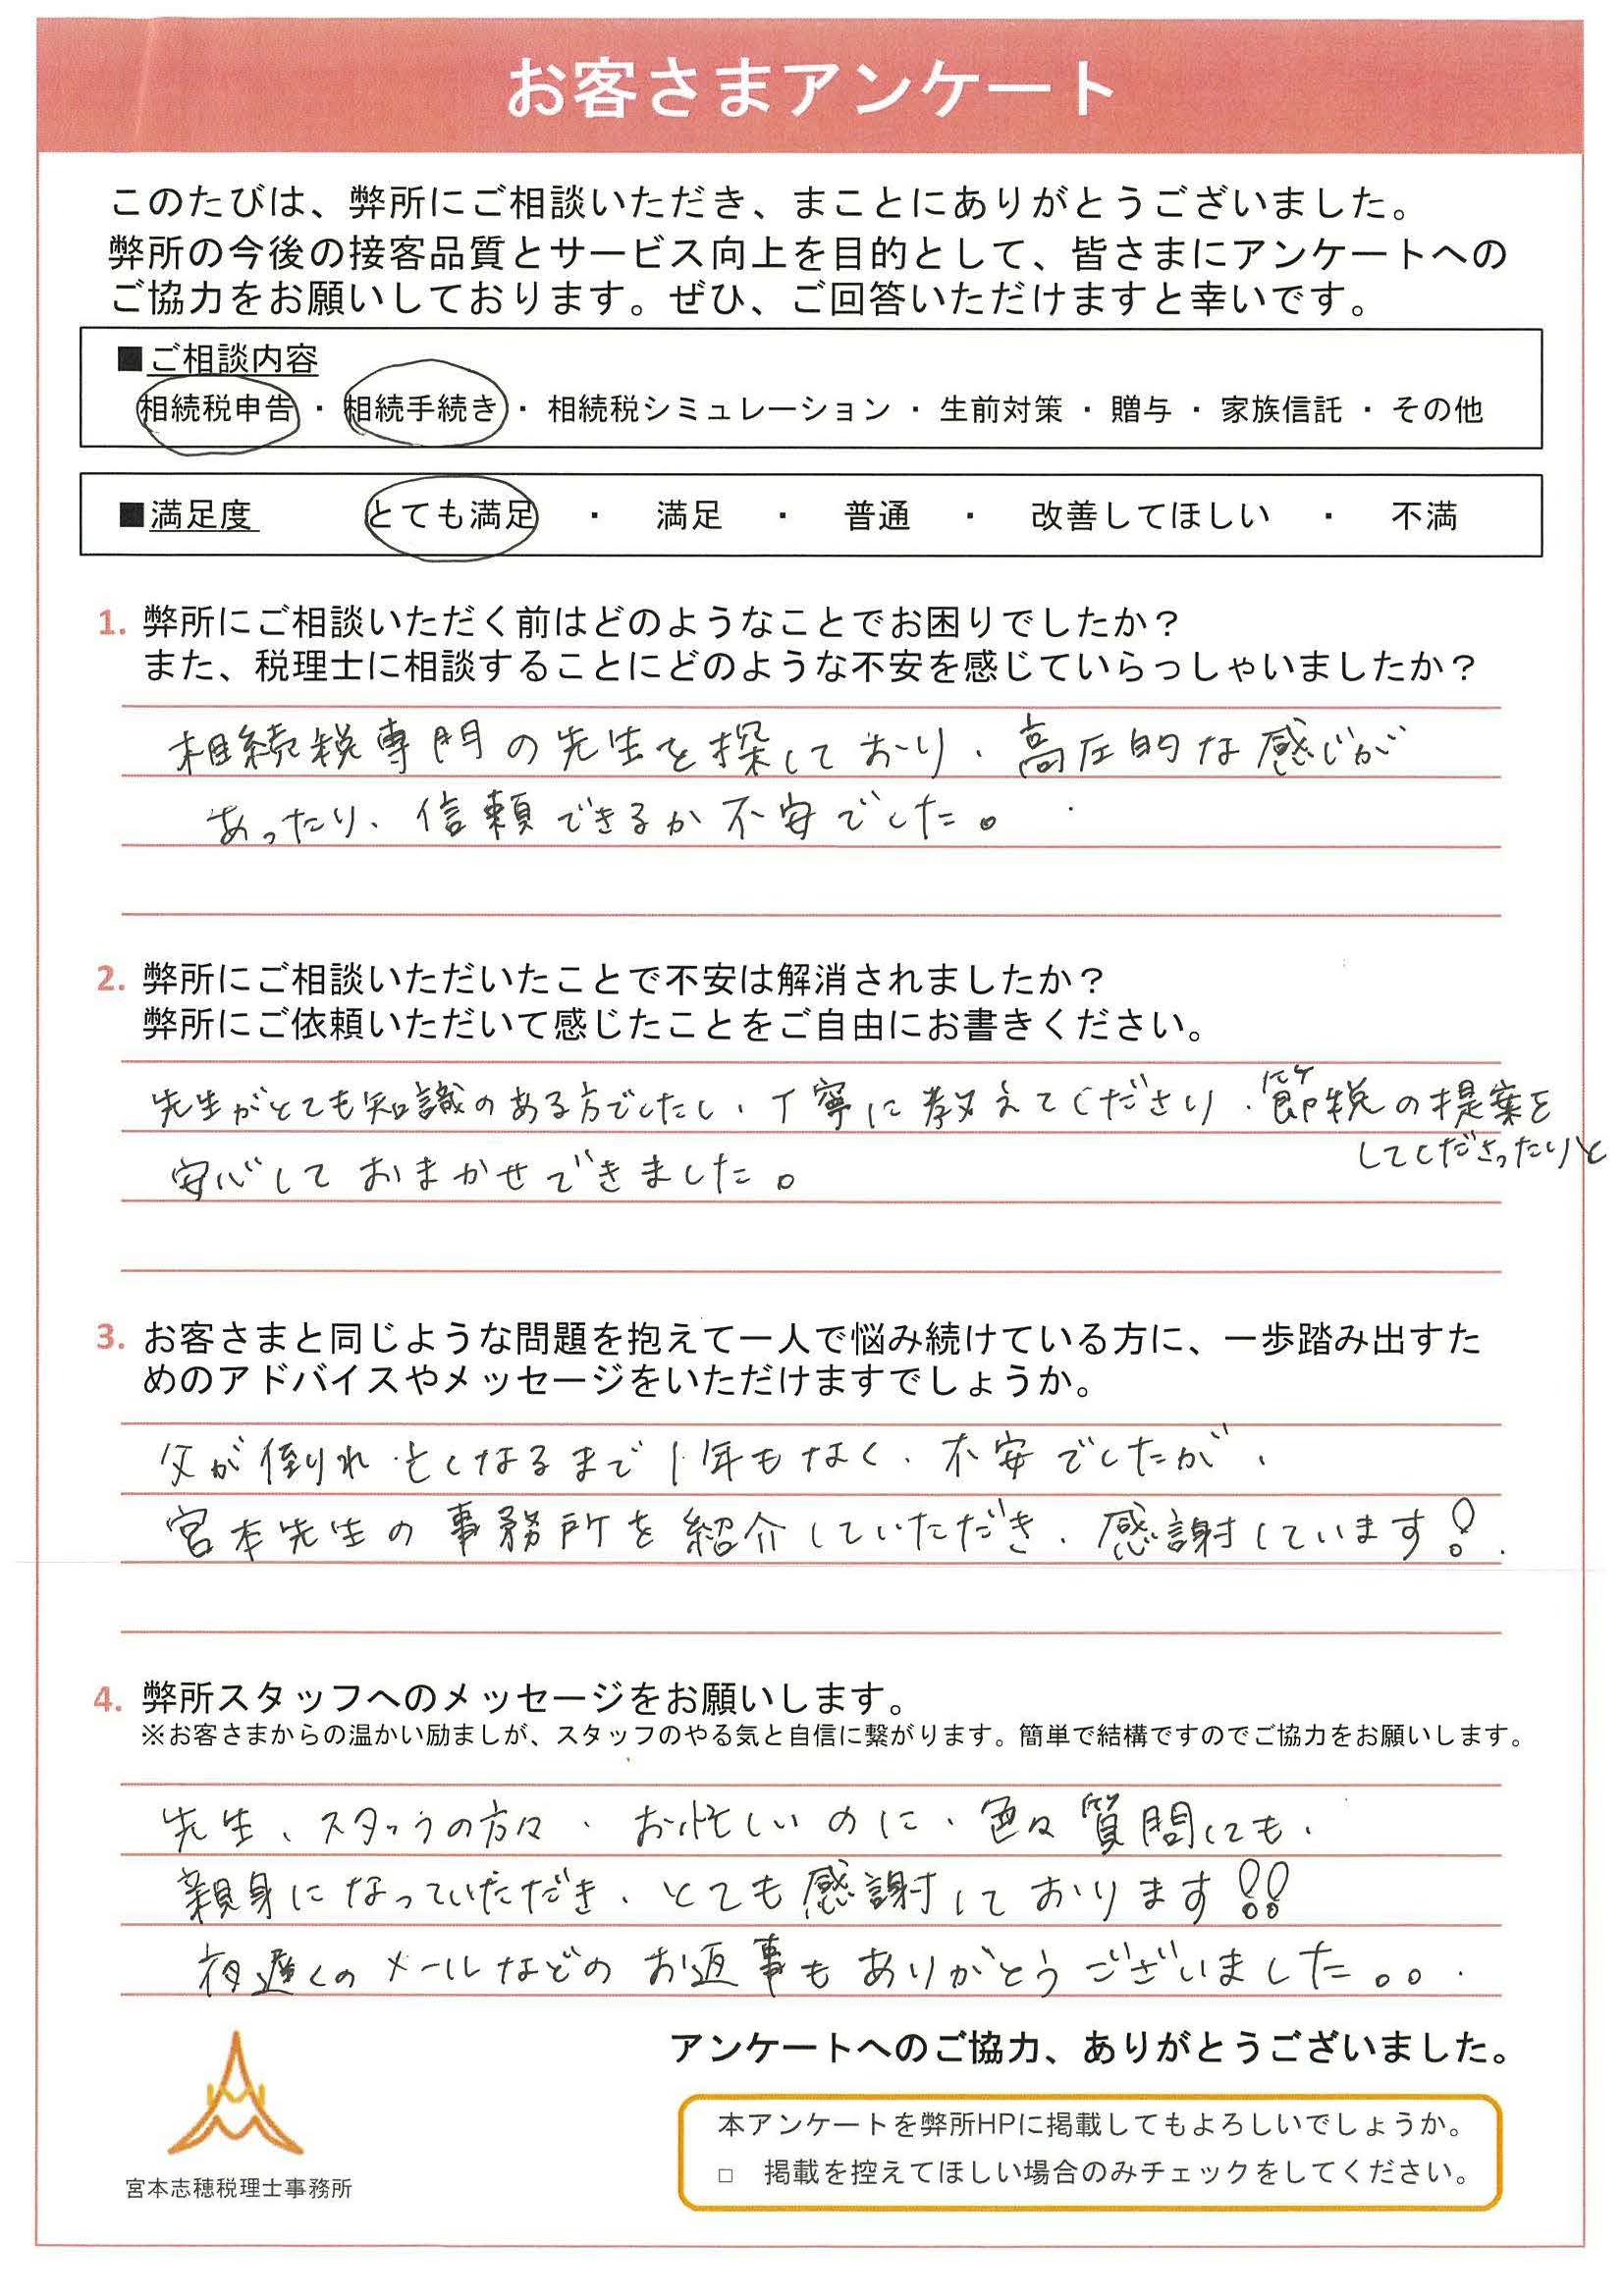 お客さまアンケート
このたびは、弊所にご相談いただき、まことにありがとうございました。
弊所の今後の接客品質とサービス向上を目的として、皆さまにアンケートへの
ご協力をお願いしております。ぜひ、ご回答いただけますと幸いです。
■ご相談内容
相続税申告 ・ 相続手続き ・ 相続税シミュレーション ・ 生前対策 ・ 贈与 ・ 家族信託 ・ その他
■満足度 とても満足 ・ 満足 ・ 普通 ・ 改善してほしい ・ 不満
1. 弊所にご相談いただく前はどのようなことでお困りでしたか？
また、税理士に相談することにどのような不安を感じていらっしゃいましたか？
相続税専門の先生を探しており、高圧的な感じが
あったり、信頼できるか不安でした。
2. 弊所にご相談いただいたことで不安は解消されましたか？
弊所にご依頼いただいて感じたことをご自由にお書きください。
先生がとても知識のある方でしたし、丁寧に教えてくださり、節税の提案を
してくださったりと
安心しておまかせできました。
3. お客さまと同じような問題を抱えて一人で悩み続けている方に、一歩踏み出すた
めのアドバイスやメッセージをいただけますでしょうか。
父が倒れ亡くなるまで1年もなく、不安でしたが、
宮本先生の事務所を紹介していただき、感謝しています！
4. 弊所スタッフへのメッセージをお願いします。
※お客さまからの温かい励ましが、スタッフのやる気と自信に繋がります。簡単で結構ですのでご協力をお願いします。
先生、スタッフの方々、お忙しいのに、色々質問しても、
親身になっていただき、とても感謝しております!!
夜遅くのメールなどのお返事もありがとうございました。。。
アンケートへのご協力、ありがとうございました。
本アンケートを弊所HPに掲載してもよろしいでしょうか。
□ 掲載を控えてほしい場合のみチェックをしてください。
宮本志穂税理士事務所